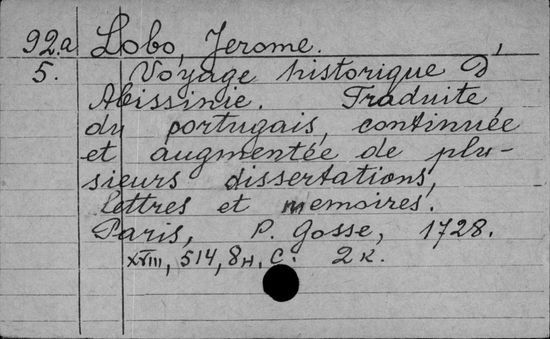 92.a Lobo, Jerome.
5. Voyage historique D'
Abissinie. Traduite,
du portugais, continuée
et augmentée de plu-
sieurs dissertations,
lettres et memoires.
Paris, P. Gosse, 1728.
XVIII, 514, 8 н. с. 2 к.